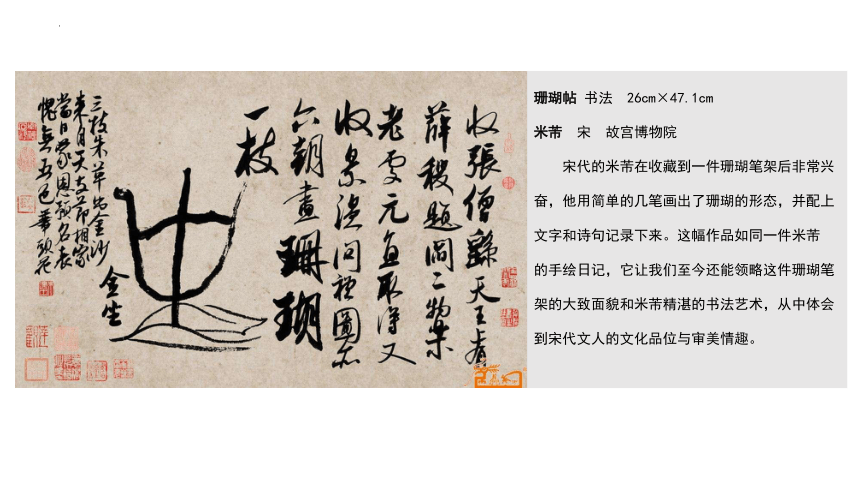 收張僧繇天王上有
薛稷題閻二物樂
老處元直取得又
收景溫問禮圖亦
六朝畫珊瑚
一枝
金坐
三枝朱草出金沙
來自天支節相家
當日蒙恩預名表
愧無五色筆頭花
珊瑚帖 书法 26cm×47.1cm
米芾 宋 故宫博物院
宋代的米芾在收藏到一件珊瑚笔架后非常兴
奋，他用简单的几笔画出了珊瑚的形态，并配上
文字和诗句记录下来。这幅作品如同一件米芾
的手绘日记，它让我们至今还能领略这件珊瑚笔
架的大致面貌和米芾精湛的书法艺术，从中体会
到宋代文人的文化品位与审美情趣。